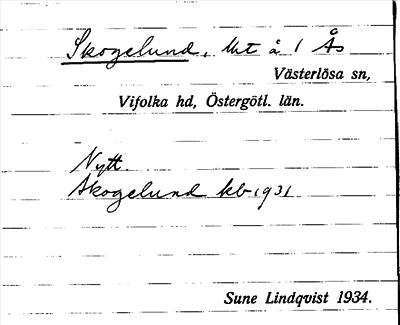 Skogelund, lht å 1 Ås
Västerlösa sn,
Vifolka hd, Östergötl. län.
Nytt.
Skogelund kb 1931
Sune Lindqvist 1934.